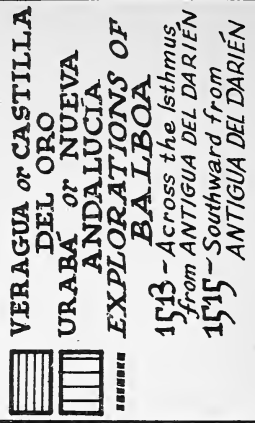 VERAGUA or CASTILLA
DEL ORO
URABÁ or NUEVA
ANDALUCÍA
EXPLORATIONS OF
BALBOA
1513 - Across the Isthmus
from ANTIGUA DEL DARIÉN
1515 - Southward from
ANTIGUA DEL DARIÉN